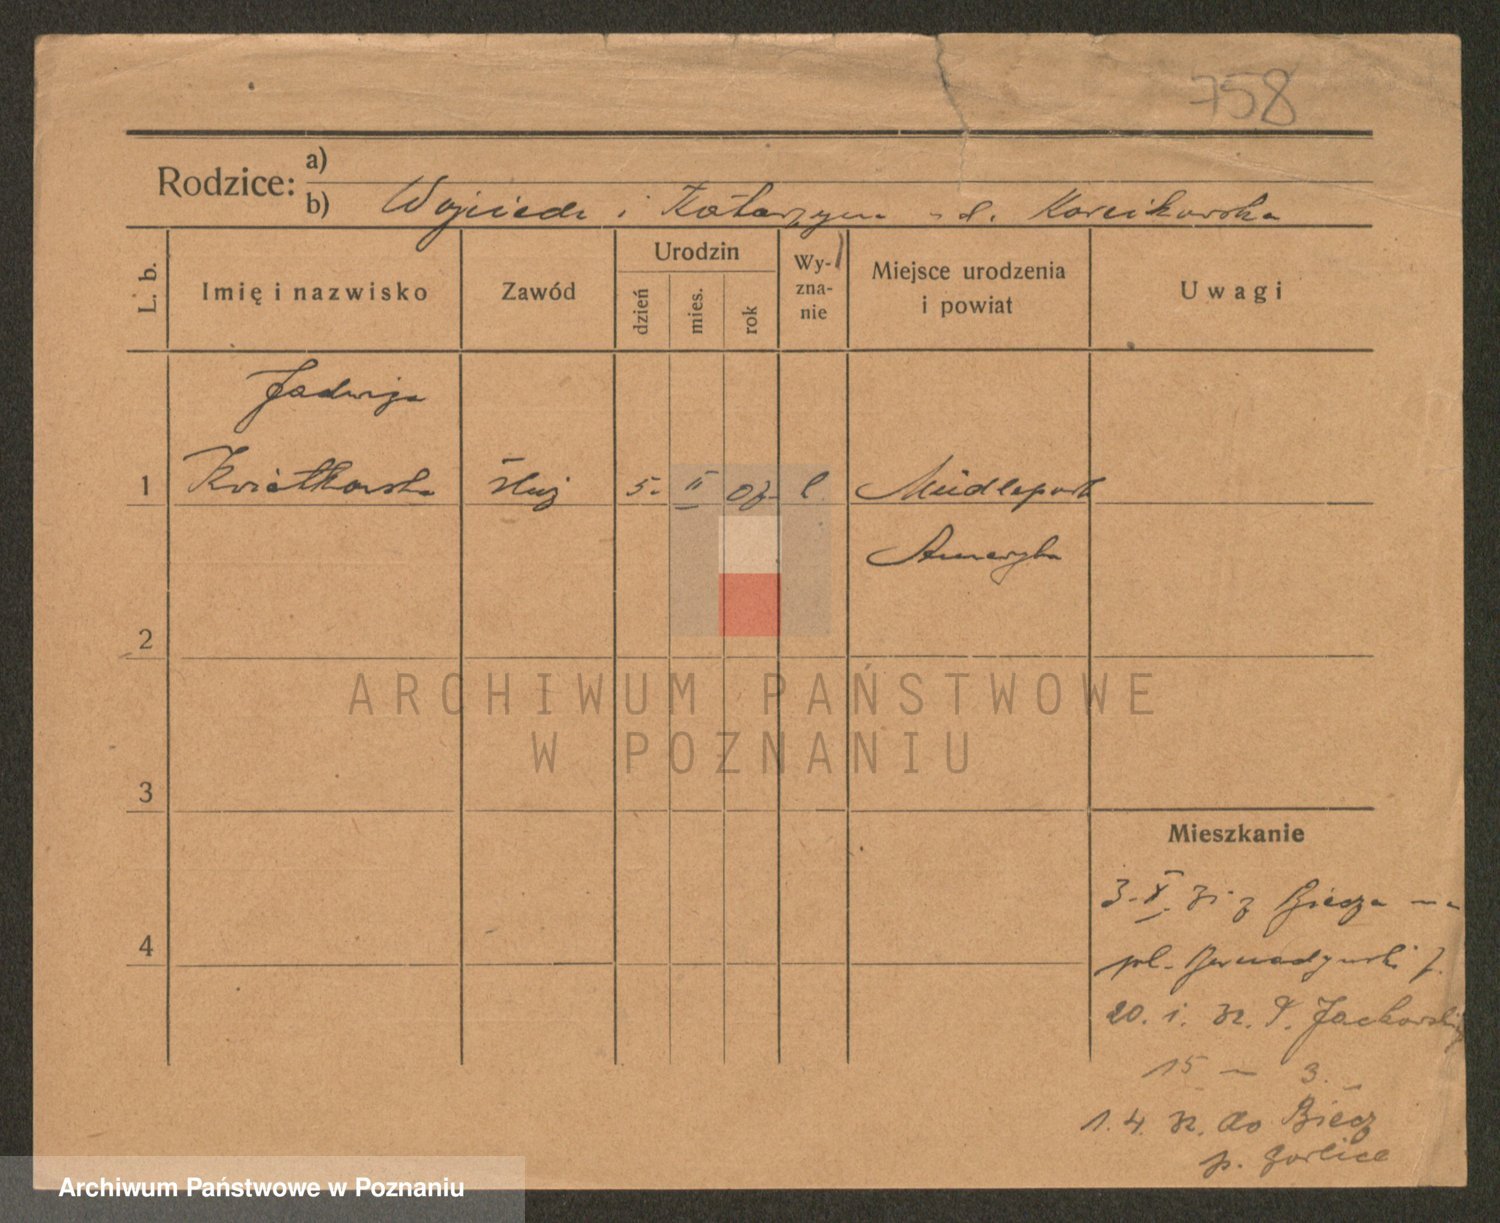 758
Rodzice: a)
b) Wojciech i Katarzyna
L. b.
Imię i nazwisko
Zawód
Urodzin
dzień
mies.
rok
Wy-
zna-
nie
Miejsce urodzenia
i powiat
Uwagi
Jadwiga
1 Kwiatkowska służ 5. II 07
Ameryka
2
ARCHIWUM PAŃSTWOWE
W POZNANIU
3
Mieszkanie
3. X. 31 z Biecza na
4
pl. Bernadyński
20. 1. 32. P. Jackowskiego
15 — 3.
1. 4. 32. do Biecz
p. Gorlice
Archiwum Państwowe w Poznaniu